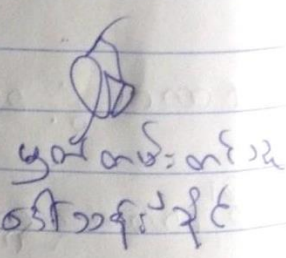 မှတ်တမ်းတင်သူ
ဒေါ်သန်းသိုင်